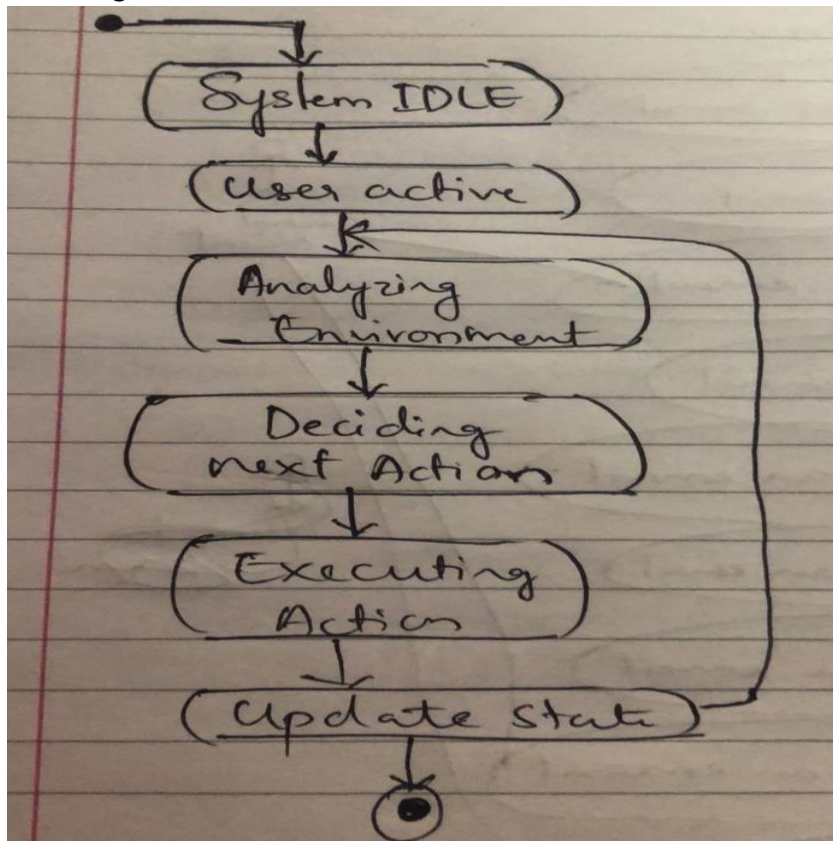 System IDLE
User active
Analyzing
Environment
Deciding
next Action
Executing
Action
Update State